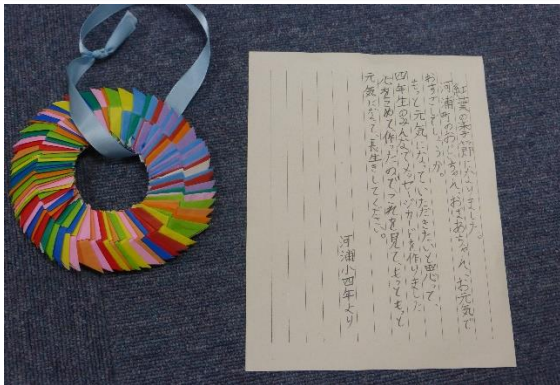 紅葉の季節になりました。
河浦町のおじいちゃん、おばあちゃん、お元気で
おすごしでしょうか。
もっと元気になっていただきたいと思って、
四年生のみんなでメッセージカードを作りました
心をこめて作ったので、これを見てもっともっと
元気になって、長生きしてください。
河浦小四年より